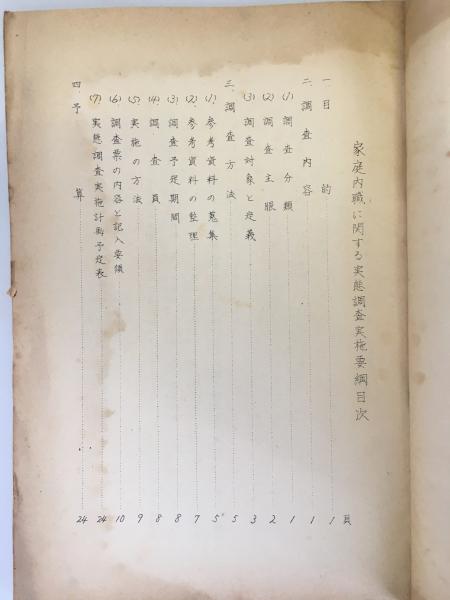 家庭内職に関する実態調査実施要綱目次
頁
一、目的 1
二、調査内容 1
(1) 調査分類 1
(2) 調査主眼 2
(3) 調査対象と定義 3
三、調査方法 5
(1) 参考資料の蒐集 5
(2) 参考資料の整理 7
(3) 調査予定期間 8
(4) 調査員 8
(5) 実施の方法 9
(6) 調査票の内容と記入要領 10
(7) 実態調査実施計画予定表 24
四、予算 24